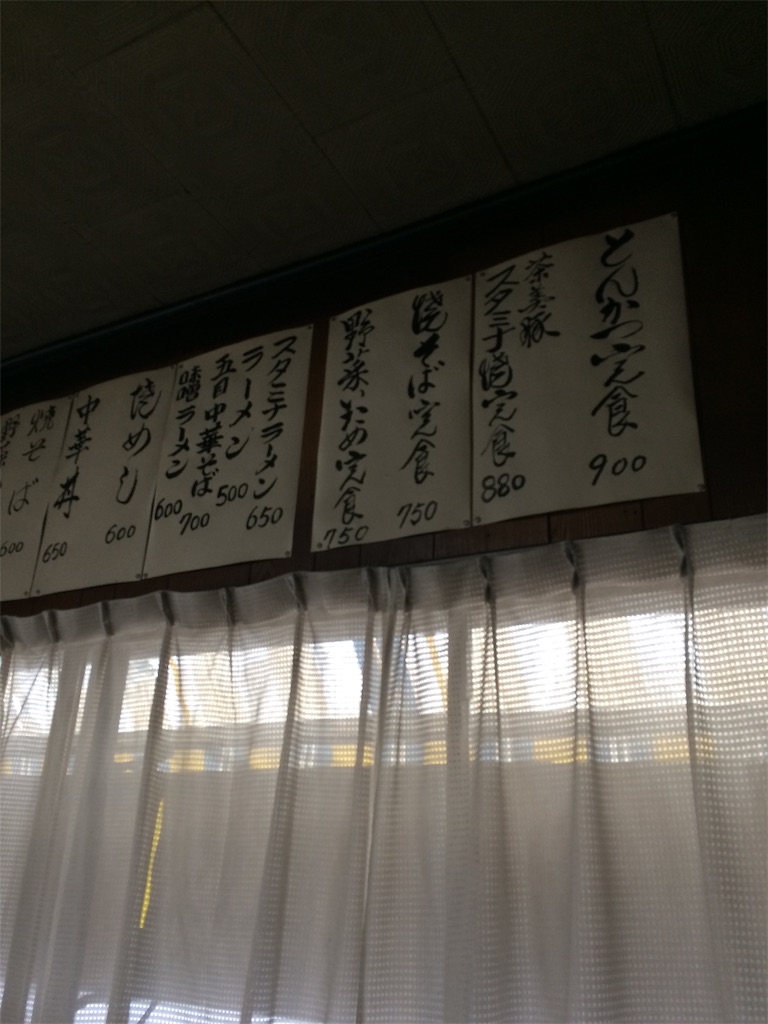 とんかつ定食 900
茶美豚
スタミナ焼定食 880
焼そば定食 750
野菜いため定食 750
スタミナラーメン 650
ラーメン 500
五目中華そば 700
味噌ラーメン 600
焼めし 600
中華丼 650
焼そば 600
野菜